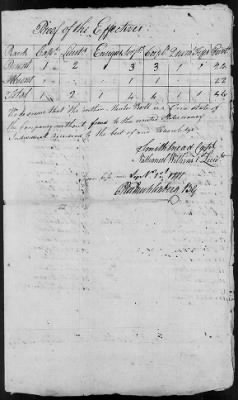 Proof of the Effectives
Rank Capt. Lieuts. Ensigns Serjts. Corpl. Drum Fifes Privt.
Present 1 2 1 3 3 1 1 22
Absent 1 22
Total 1 2 1 4 3 1 1 44
We do swear that the within Muster Roll is a true state of
the Company without fraud to the united States or any
Individual according to the best of our Knowledge
Smith Snead Capt.
Nathaniel Wilkins Lieut.
Sworn before me Septr.
P Muhlenberg B G